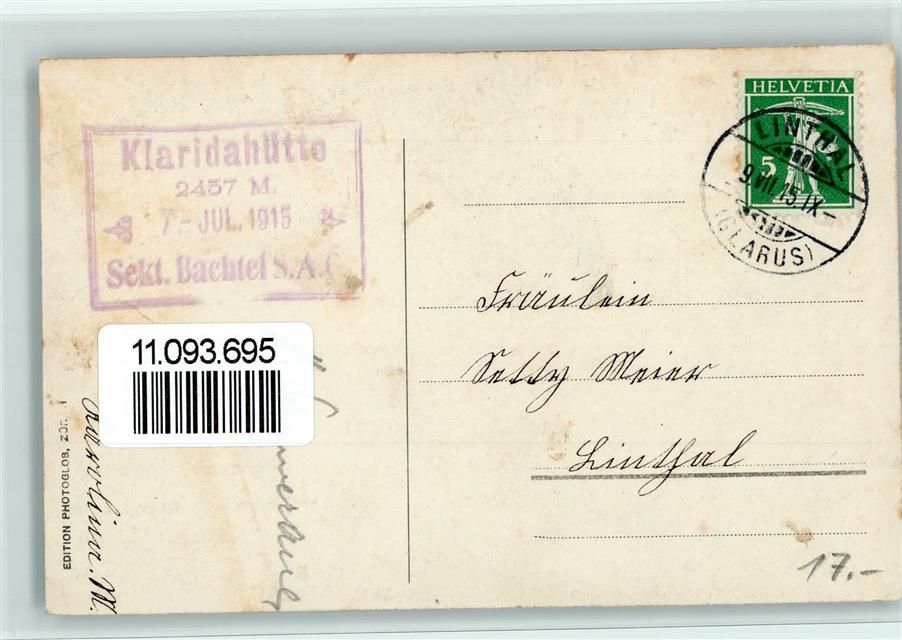 Klaridahütte
2457 M.
7 - JUL. 1915
Sekt. Bachtel S.A.C.
HELVETIA
5
LINTHAL
9.VII.15.IX-
(GLARUS)
Fräulein
Setty Meier
Linthal
11.093.695
EDITION PHOTOGLOB,
17.-